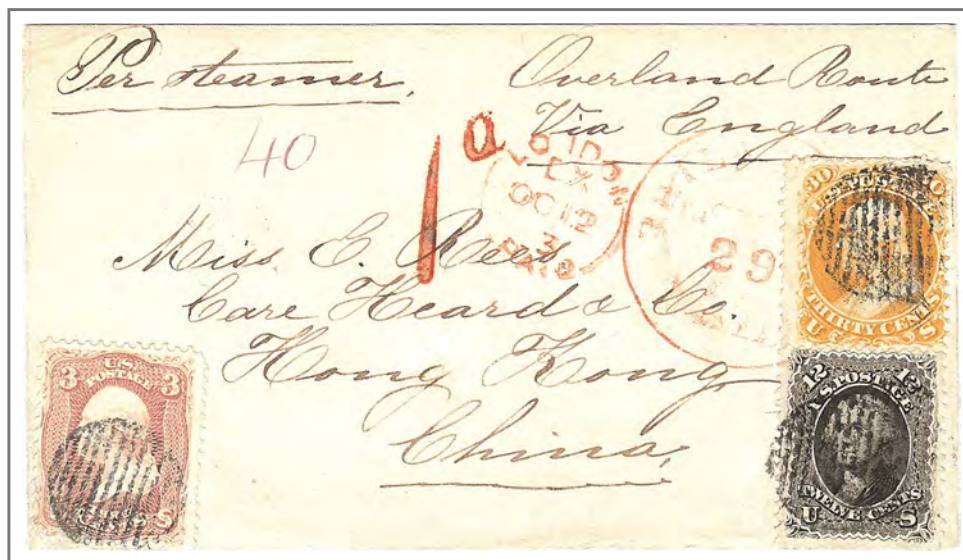 Per steamer,
Overland Route
Via England
40
1d
LONDON
EX
OC 12
3
PAID
29
Miss E. Rees
Care Heard & Co.
Hong Kong,
China,
30
U.S. POSTAGE
THIRTY CENTS
U S
3 U.S. 3
POSTAGE
S
12 12
U.S. POSTAGE
TWELVE CENTS
U S